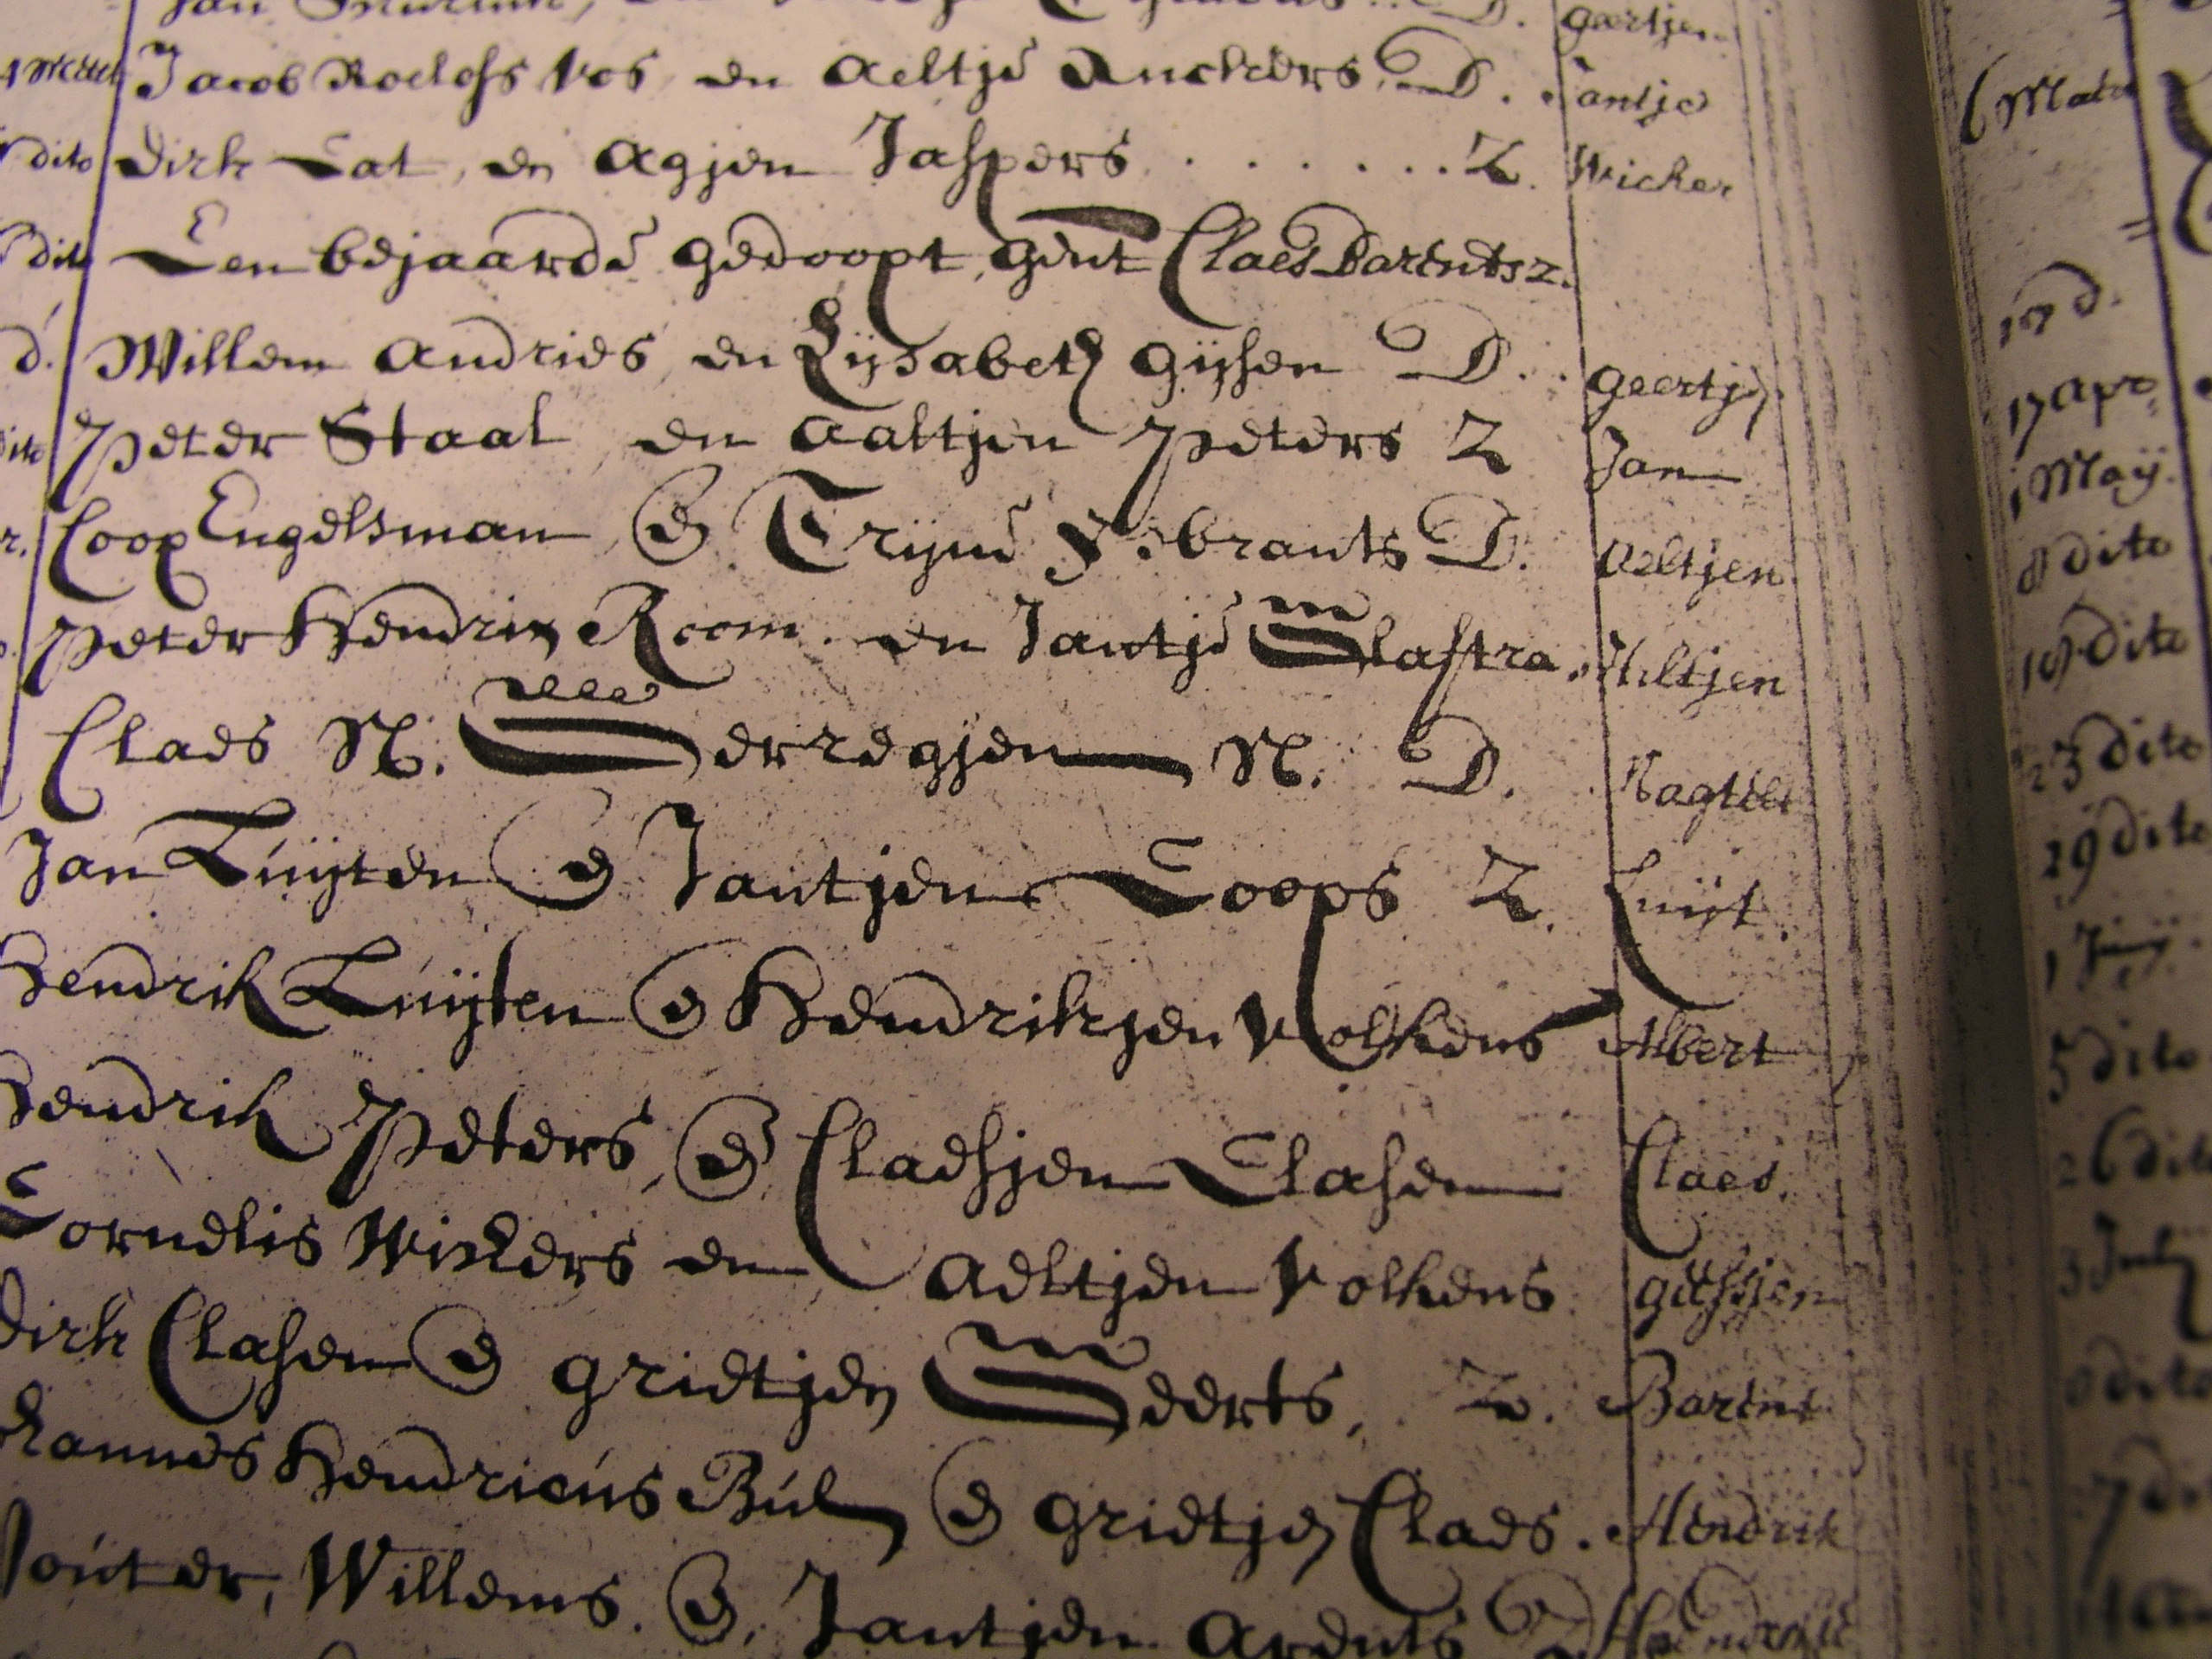 Jacob Roelofs Vos en Aeltje Anckers D. Jantje
dito Dirk Lat, en Agjen Jaspers . . . . . . . Z. Wicher
dito Een bejaarde gedoopt gent Claes Barentsz.
d. Willem Andries en Lijsabeth Gijsen D. Geertje
dito Peter Staal en Aaltjen Peters Z Jan
Coop Engelsman e Trijne Sibrants D. Aeltjen
Peter Hendrix Room en Jantje Slastra Hiltjen
Claes N. Gerregjen N. D.
Jan Luijten e Jantjen Coops Z. Luijt.
Hendrik Luijten e Hendrikjen Volkens Albert
Hendrik Peters, e Claesjen Clasen Claes.
Cornelis Wickers en Aeltjen Volkens
Dirk Clasen e Grietjen Geerts, Z. Barent
Hendricus Bul e Grietje Claes. Hendrik
Wouter, Willems. e, Jantjen Arents
17 Apr.
1 Maij.
8 dito
dito
23 dito
29 dito
1 Junij
5 dito
26 dito
3 Julij
dito